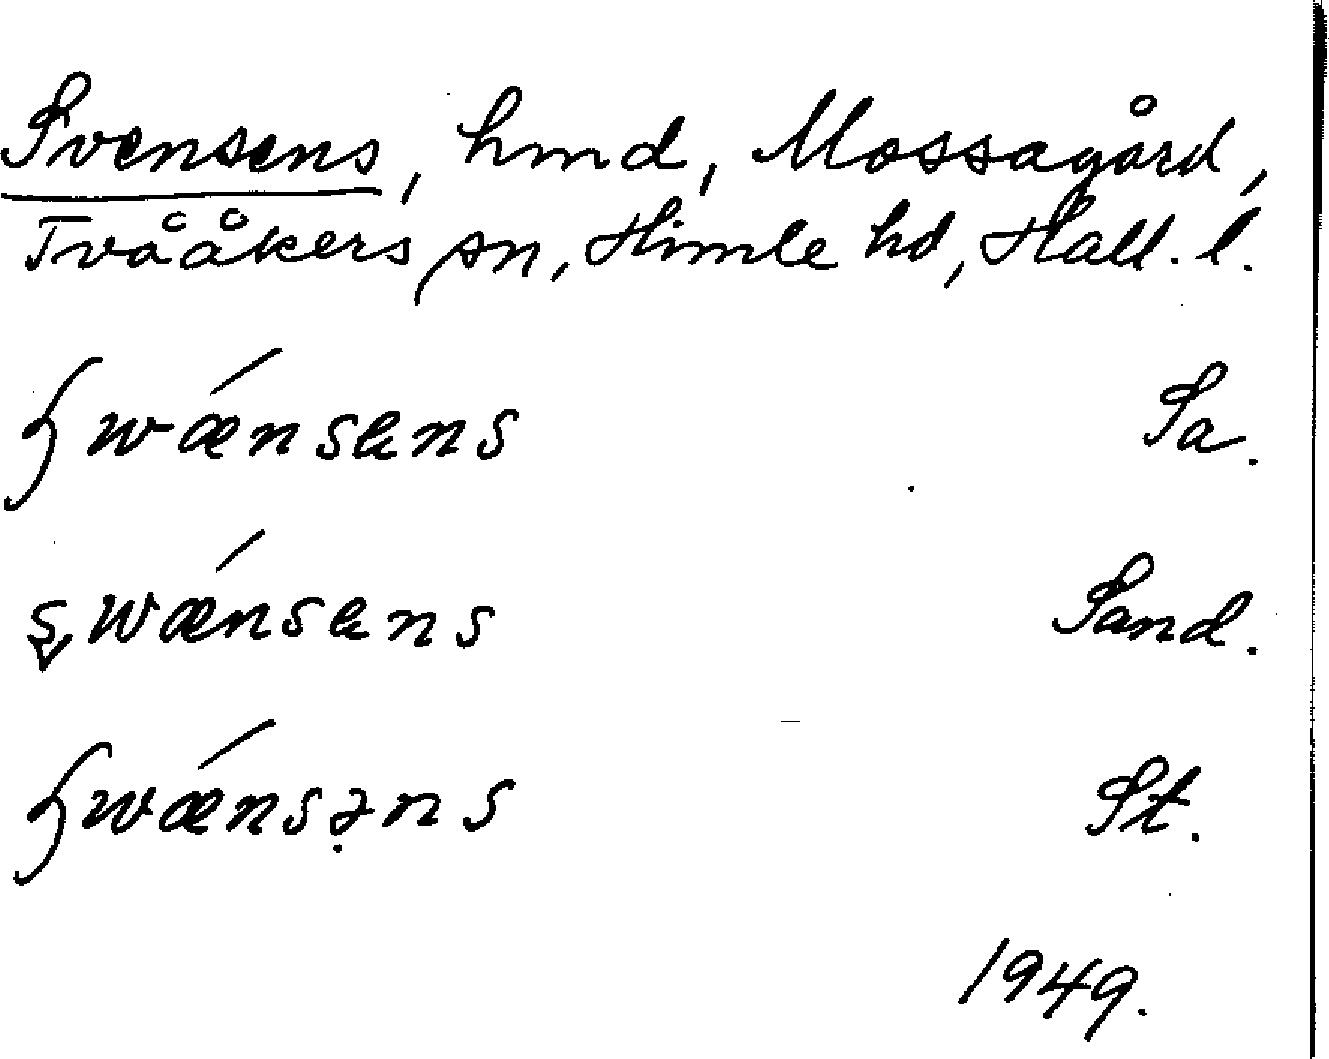 Svensens, hmd, Mossagård,
Tvååkers sn, Himle hd, Hall. l.
Sa.
Sand.
St.
1949.